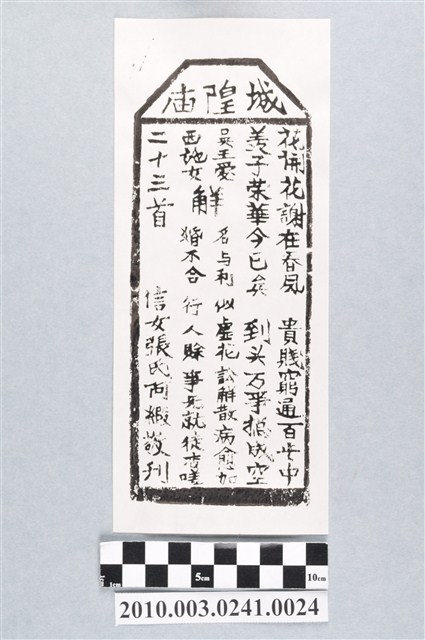 城隍庙
花開花謝在春風 貴賤窮通百年中
羨子荣華今已矣 到头万事摠成空
吳王愛 解 名与利 似虚花 訟解散 病愈加
西地女 婚不合 行人賒 事无就 徒吁嗟
二十三首 信女張氏 敬刊
1cm 5cm 10cm
2010.003.0241.0024